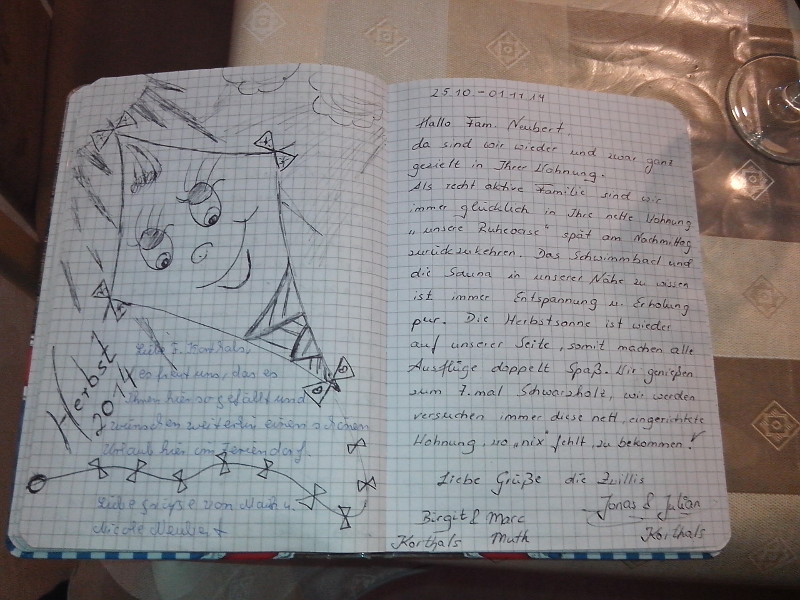 Herbst
2014
Liebe F. Korthals,
es freut uns, das es
Ihnen hier so gefällt und
wünschen weiterhin einen schönen
Urlaub hier im Feriendorf.
Liebe Grüße von Maik u.
Nicole Neubert
25.10.-01.11.14
Hallo Fam. Neubert,
da sind wir wieder und zwar ganz
gezielt in Ihrer Wohnung.
Als recht aktive Familie sind wir
immer glücklich in Ihre nette Wohnung
„unsere Ruheoase" spät am Nachmittag
zurückzukehren. Das Schwimmbad und
die Sauna in unserer Nähe zu wissen
ist immer Entspannung u. Erholung
pur. Die Herbstsonne ist wieder
auf unserer Seite, somit machen alle
Ausflüge doppelt Spaß. Wir genießen
zum 7. mal Schwarzholz, wir werden
versuchen immer diese nett, eingerichtete
Wohnung, wo „nix" fehlt, zu bekommen.
Liebe Grüße die Zwillis
Jonas & Julian
Korthals
Birgit & Marc
Korthals Muth